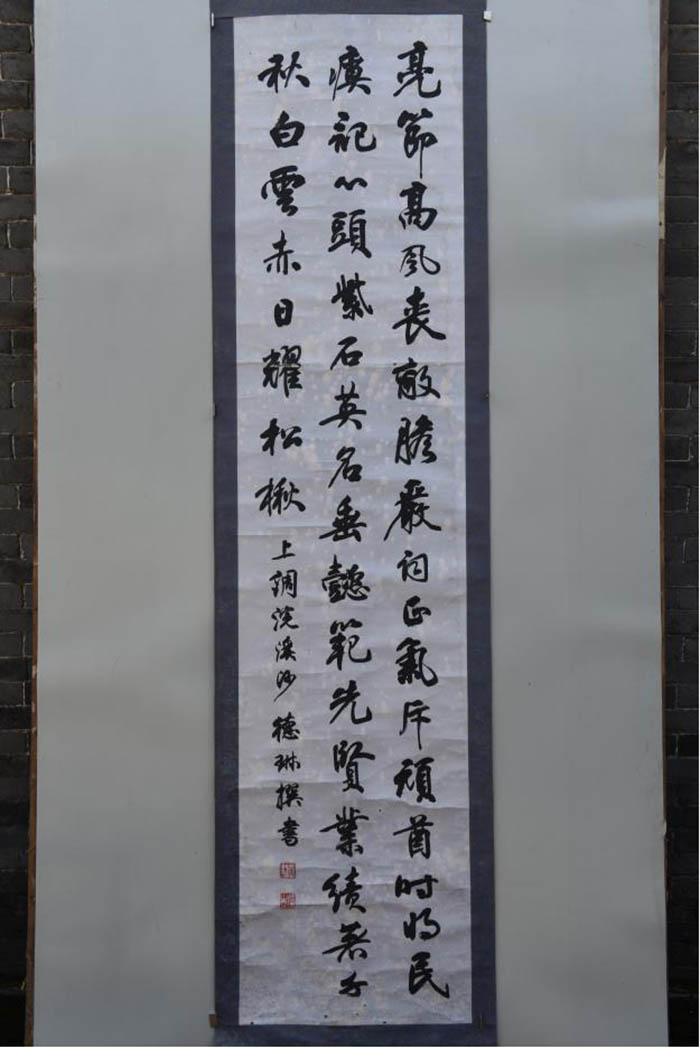 亮節高風喪敵膽嚴詞正氣斥頑酋時將民
瘼記心頭紫石英名垂懿範先賢業績著千
秋白雲赤日耀松楸上調浣溪沙德琳撰書